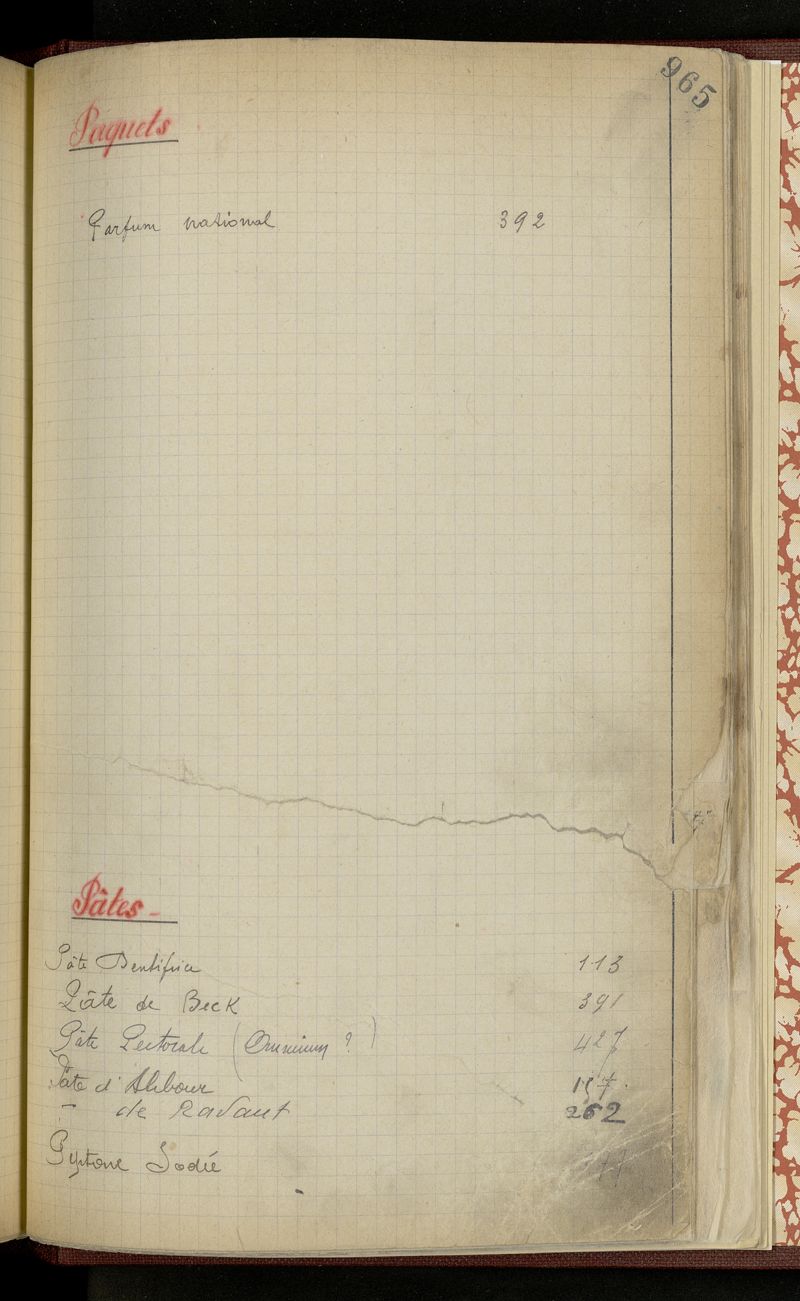 965
Paquets
Parfum national 392
Pâtes -
Pâte Dentifrice 113
Pâte de Beck 391
Pâte Pectorale (Omnium ?) 427
Pâte d'Alibour 157.
- de Ravaut 262
Peptone Iodée